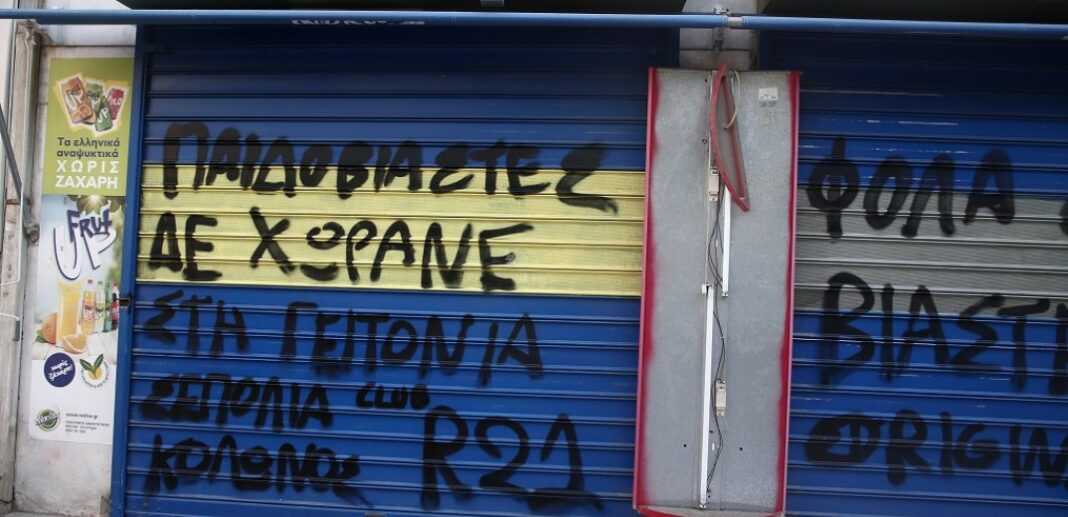 Τα ελληνικά
αναψυκτικά
ΧΩΡΙΣ
ΖΑΧΑΡΗ
Frut
UP
ΠΑΙΔΟΒΙΑΣΤΕΣ
ΔΕ ΧΩΡΑΝΕ
ΣΤΗ ΓΕΙΤΟΝΙΑ
ΣΕΠΟΛΙΑ CLUB
ΚΟΛΩΝΟΣ R21
ΦΟΛΑ
ΒΙΑΣΤΕ
ORIGIN